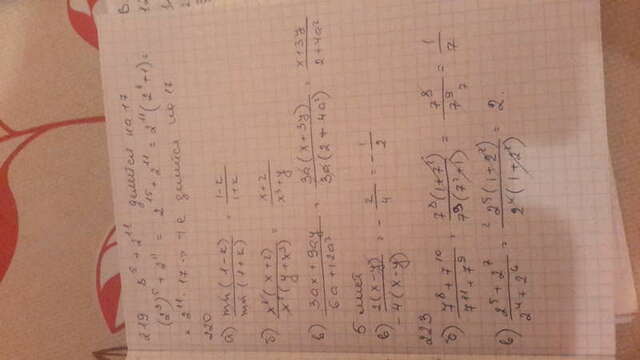 219 8⁵ + 2¹¹ делится на 17
(2³)⁵ + 2¹¹ = 2¹⁵ + 2¹¹ = 2¹¹(2⁴+1) =
= 2¹¹ · 17 → т.е делится на 17
220
а) mn(1-k)/mn(1+k) = 1-k/1+k
б) x²(x+2)/x²(y+x²) = x+2/x²+y
в) 3ax + 9ay/6a + 12a³ = 3a(x+3y)/3a(2+4a²) = x+3y/2+4a²
в) 2(x-y)/-4(x-y) = -2/4 = -1/2
223
б) 7⁸ + 7¹⁰/7¹¹ + 7⁹ = 7⁸(1+7²)/7⁹(7²+1) = 7⁸/7⁹ = 1/7
в) 2⁵ + 2⁷/2⁴ + 2⁶ = 2⁵(1+2²)/2⁴(1+2²) = 2.